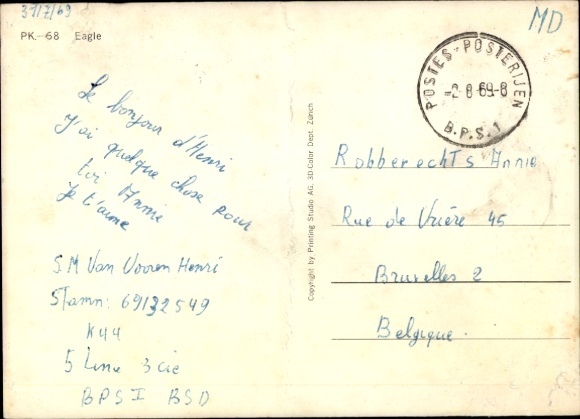 31/7/69
MD
PK.-68 Eagle
POSTES-POSTERIJEN
-2-8-69-8
B.P.S.1
Le bonjour d'Henri
J'ai quelque chose pour
toi Annie
Je t'aime
S.M Van Vooren Henri
Stamn: 69132549
K44
5 Line 3 cie
BPS I BSD
Copyright by Printing Studio AG, 3D-Color Dept. Zürich
Robberechts Annie
Rue de Vrière 45
Bruxelles 2
Belgique.